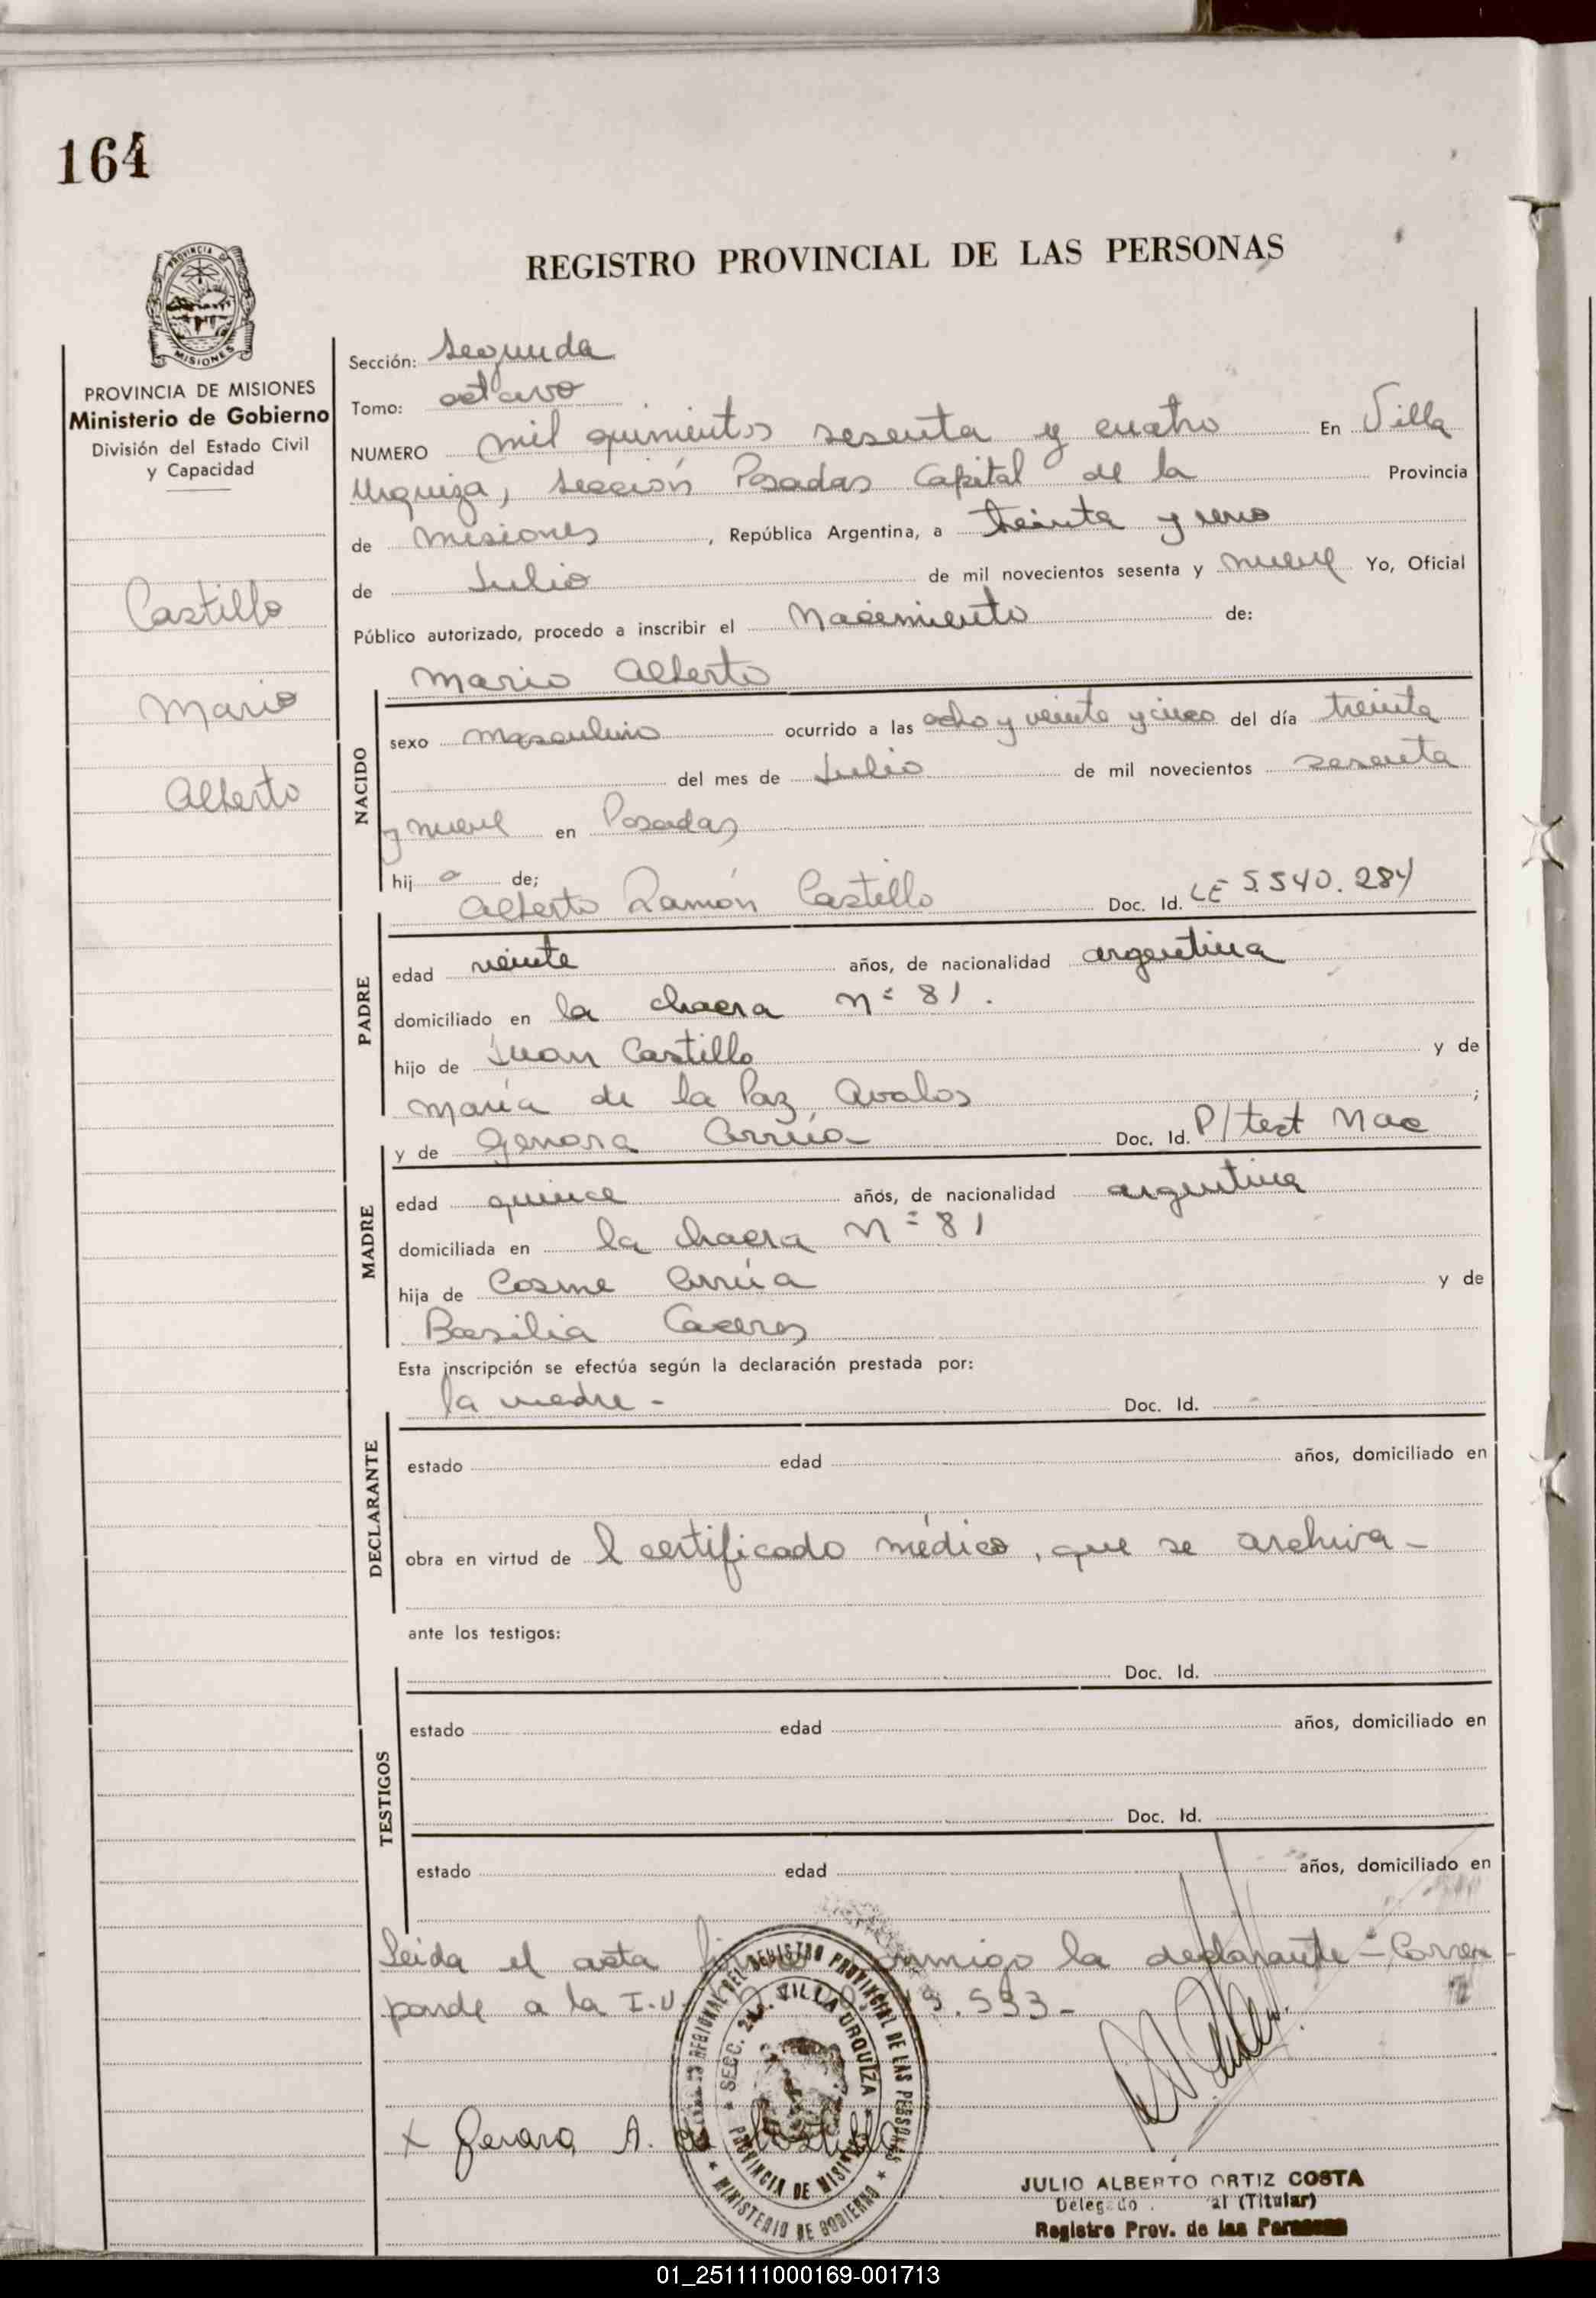 164
REGISTRO PROVINCIAL DE LAS PERSONAS
PROVINCIA
MISIONES
PROVINCIA DE MISIONES
Ministerio de Gobierno
División del Estado Civil
y Capacidad
Castillo
Mario
Alberto
Sección: Segunda
Tomo: octavo
NUMERO mil quinientos sesenta y cuatro En Villa
Urquiza, Sección Posadas Capital de la Provincia
de Misiones, República Argentina, a treinta y uno
de Julio de mil novecientos sesenta y nueve Yo, Oficial
Público autorizado, procedo a inscribir el Nacimiento de:
Mario Alberto
NACIDO
sexo masculino ocurrido a las ocho y veinte y cinco del día treinta
del mes de Julio de mil novecientos sesenta
y nueve en Posadas
hij o de;
Alberto Ramón Castillo Doc. Id. LE 5.540.284
PADRE
edad veinte años, de nacionalidad argentina
domiciliado en la chacra nº 81.
hijo de Juan Castillo y de
María de la Paz Avalos ;
y de Genara Arrúa Doc. Id. P/test Nac
MADRE
edad quince años, de nacionalidad argentina
domiciliada en la chacra nº 81
hija de Cosme Arrúa y de
Basilia Caceres
Esta inscripción se efectúa según la declaración prestada por:
la madre - Doc. Id. -
DECLARANTE
estado edad años, domiciliado en
obra en virtud de l certificado médico, que se archiva -
ante los testigos:
Doc. Id.
TESTIGOS
estado edad años, domiciliado en
Doc. Id.
estado edad años, domiciliado en
Leida el acta conmigo la declarante - Corres
ponde a la I.U. 593 -
REGIONAL DEL REGISTRO PROVINCIAL DE LAS PERSONAS
SECC. 2da. VILLA URQUIZA
PROVINCIA DE MISIONES
* MINISTERIO DE GOBIERNO *
x Genara A. de Castillo
JULIO ALBERTO ORTIZ COSTA
(Titular)
Registro Prov. de las Personas
01_251111000169-001713